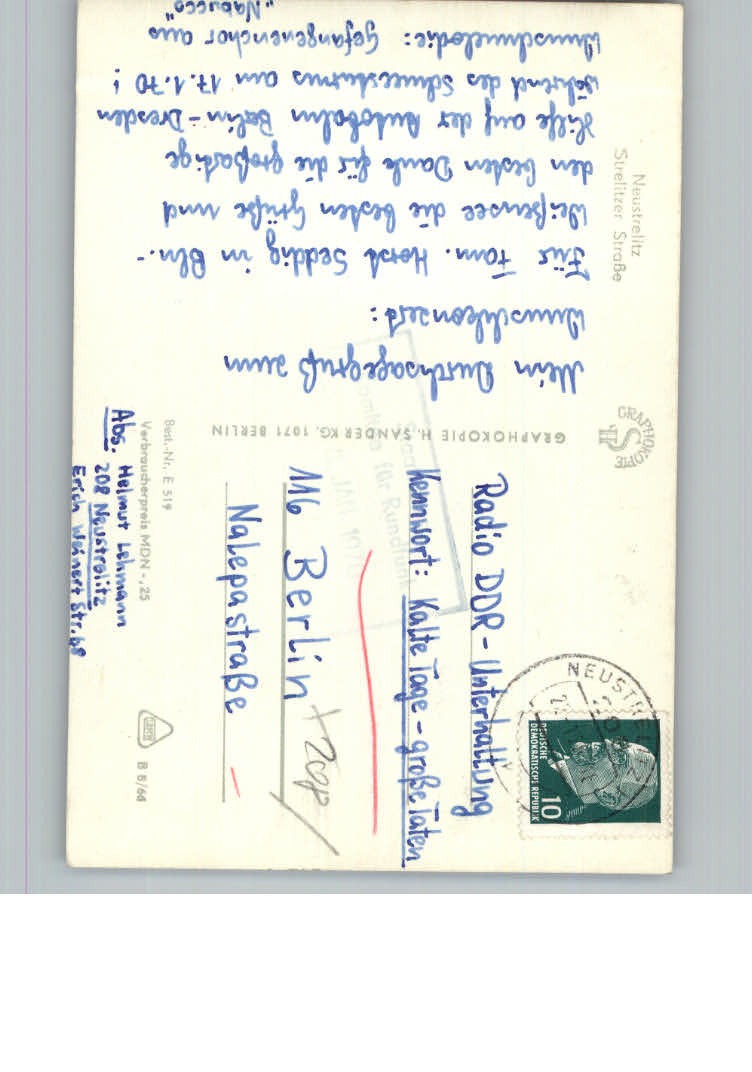 Neustrelitz
Strelitzer Straße
Mein Durchsagegruß zum
Wunschkonzert:
Für Fam. Horst Seddig in Bln.-
Weißensee die besten Grüße und
den besten Dank für die großartige
Hilfe auf der Autobahn Berlin–Dresden
während des Schneesturms am 17.1.70!
Wunschmelodie: Gefangenenchor aus
"Nabucco"
GRAPHOKOPIE
HS
GRAPHOKOPIE H. SANDER KG. 1071 BERLIN
Radio DDR - Unterhaltung
Kennwort: Kalte Tage – große Taten
116 Berlin
Nalepastraße
+ 208
für Rundfunk
JAN 197
NEUSTRELITZ
DEUTSCHE
DEMOKRATISCHE REPUBLIK
10
Best.-Nr. E 519
Verbraucherpreis MDN -,25
Abs. Helmut Lehmann
208 Neustrelitz
Erich Weinert Str.
B 8/66